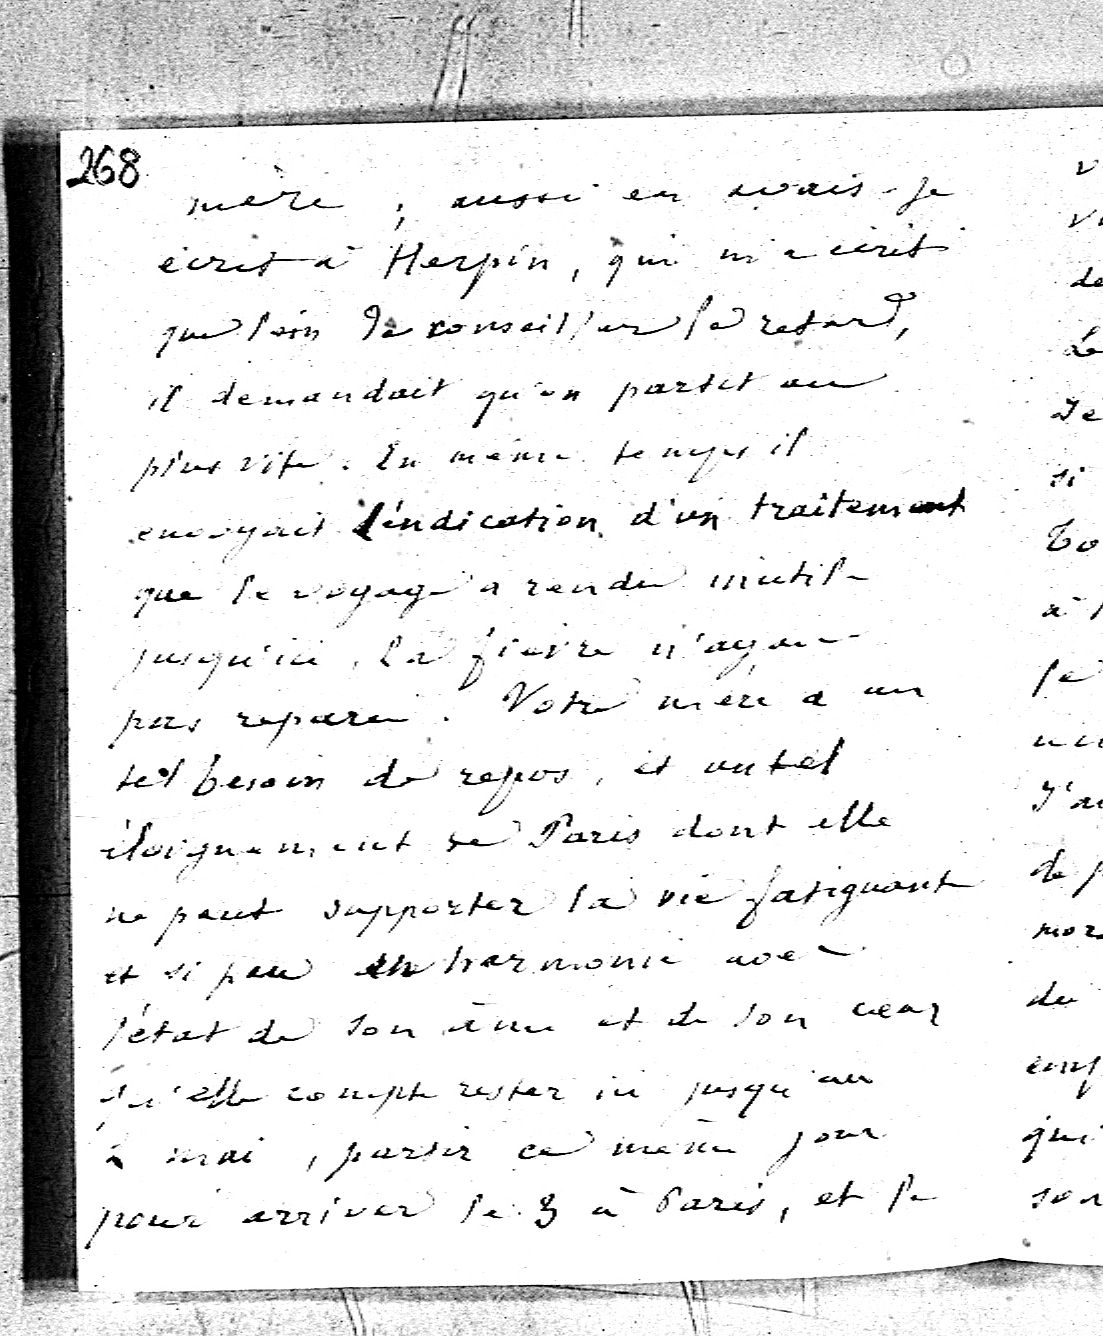 268
mère ; aussi en avais-je
écrit à Herpin, qui m'a écrit
que loin de conseiller le retard,
il demandait qu'on partit au
plus vite. En même temps il
envoyait l'indication d'un traitement
que le voyage a rendu inutile
jusqu'ici, la fièvre n'ayant
pas reparu. Votre mère a un
tel besoin de repos, et un tel
éloignement de Paris dont elle
ne peut supporter la vie fatigante
et si peu en harmonie avec
l'état de son âme et de son cœur
qu'elle compte rester ici jusqu'au
2 mai, partir ce même jour
pour arriver le 3 à Paris, et le